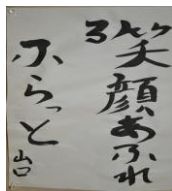 笑顔あふれ
る
ふらっと
山口